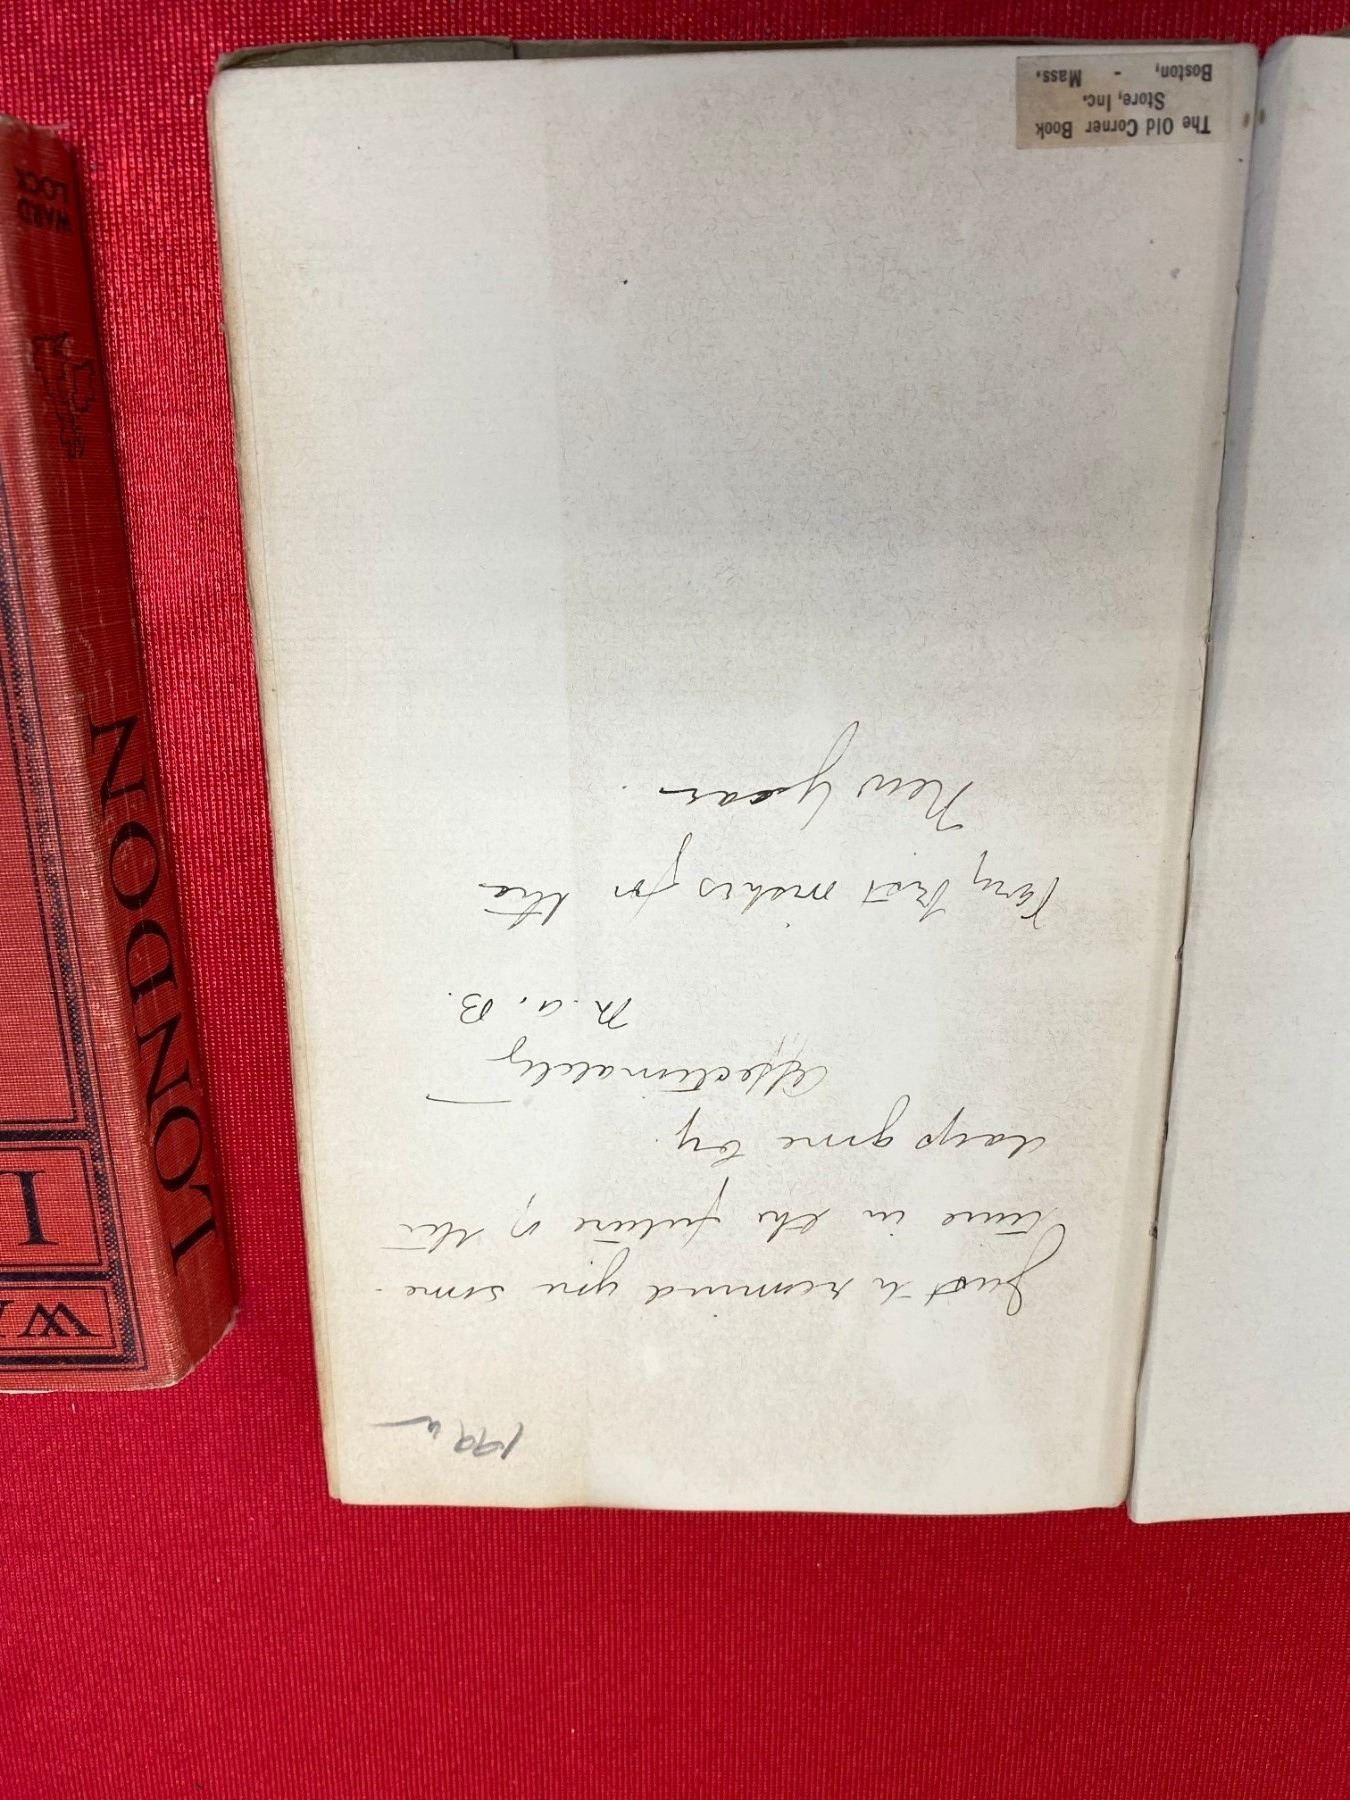 1996
Just to remind you some-
time in the future of the
days gone by.
Affectionately
M. A. B.
Very best wishes for the
New Year.
The Old Corner Book
Store, Inc.
Boston, - Mass.
LONDON
WARD
LOCK
WA
L